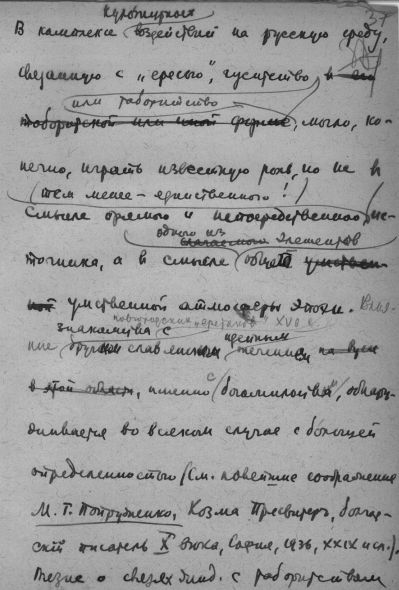 культурных
37
В комплексе воздействий на русскую среду,
связанную с „ересью", гуситство в его
или таборитство
таборитской или иной форме, могло, ко-
нечно, играть известную роль, но не в
(тем менее – единственного!)
смысле прямого и непосредственного ис-
одного из элементов
точника, а в смысле общей умствен-
ной умственной атмосферы эпохи. Влия-
новгородских „еретиков" XV в.
знакомства с идейным
ние другим славянским течением
в этой области, именно с „богомильства", обнару-
живается во всяком случае с большей
определенностью (см. новейшие соображения
М. Г. Попруженко, Козма Пресвитер, болгар-
ский писатель X века, София, 1936, XXIX и сл.).
Тезис о связях с таборитством